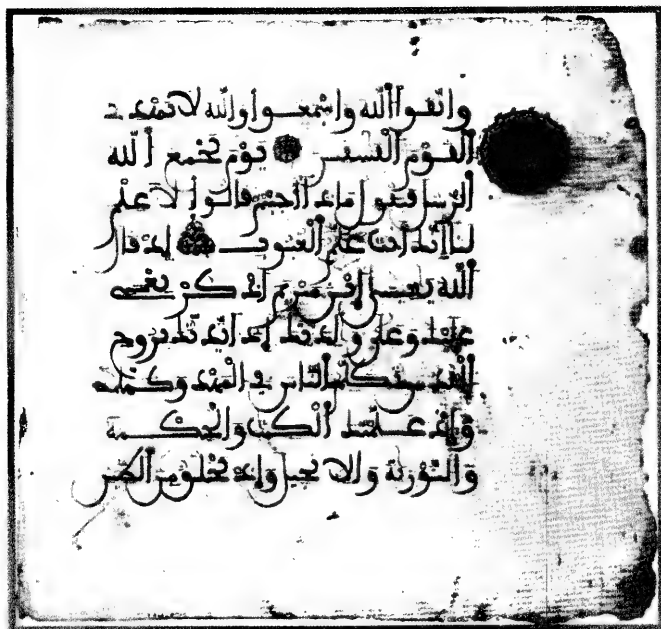 وَاتَّقُوا اللّٰه وَاسْمَعُوا وَاللّٰه لَا يَهْدِي
الْقَوْمَ الْفٰسِقِينَ يَوْمَ يَجْمَعُ اللّٰه
الرُّسُلَ فَيَقُولُ مَاذَا أُجِبْتُمْ قَالُوا لَا عِلْمَ
لَنَا إِنَّكَ أَنتَ عَلّٰمُ الْغُيُوبِ إِذْ قَالَ
اللّٰه يٰعِيسَى ابْنَ مَرْيَمَ اذْكُرْ نِعْمَتِي
عَلَيْكَ وَعَلَى وٰلِدَتِكَ إِذْ أَيَّدتُّكَ بِرُوحِ
الْقُدُسِ تُكَلِّمُ النَّاسَ فِي الْمَهْدِ وَكَهْلًا
وَإِذْ عَلَّمْتُكَ الْكِتٰبَ وَالْحِكْمَةَ
وَالتَّوْرٰىةَ وَالْإِنجِيلَ وَإِذْ تَخْلُقُ مِنَ الطِّينِ